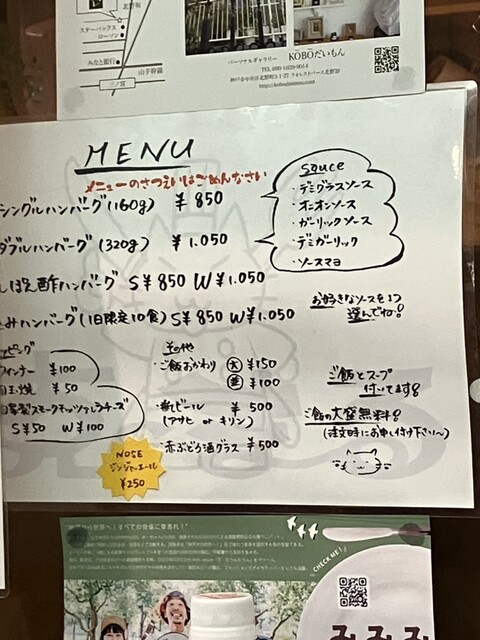 北野坂
スターバックス
ローソン
みなと銀行
山手幹線
三ノ宮
パーソナルギャラリー KOBOだいもん
MENU
メニューのさつえいはごめんなさい
シングルハンバーグ(160g) ¥850
ダブルハンバーグ(320g) ¥1.050
しぽん酢ハンバーグ S¥850 W¥1.050
みハンバーグ(1日限定10食) S¥850 W¥1.050
sauce
・デミグラスソース
・オニオンソース
・ガーリックソース
・デミガーリック
・ソースマヨ
お好きなソースを1つ
選んでね!
ッピング
ウィンナー ¥100
目玉焼 ¥50
自家製スモークモッツァレラチーズ
S¥50 W¥100
その他
・ご飯おかわり 大 ¥150
並 ¥100
・瓶ビール ¥500
(アサヒ or キリン)
・赤ぶどう酒グラス ¥500
NOSE
ジンジャーエール
¥250
ご飯とスープ
付いてます!
ご飯の大盛無料!
(注文時にお申し付け下さい〜)
CHECK ME!